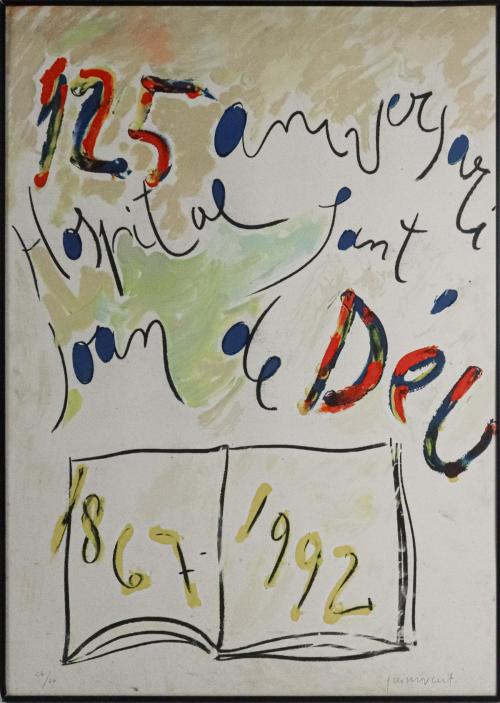 125 aniversari
Hospital Sant
Joan de Déu
1867- 1992